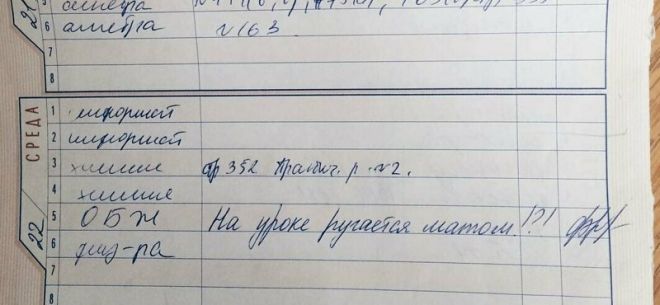 21
5 алгебра
6 алгебра №163.
7
8
СРЕДА
22
1 информат
2 информат
3 химия стр 352 Практич. р. №2.
4 химия
5 ОБЖ На уроке ругается матом!?!
6 физ-ра
7
8